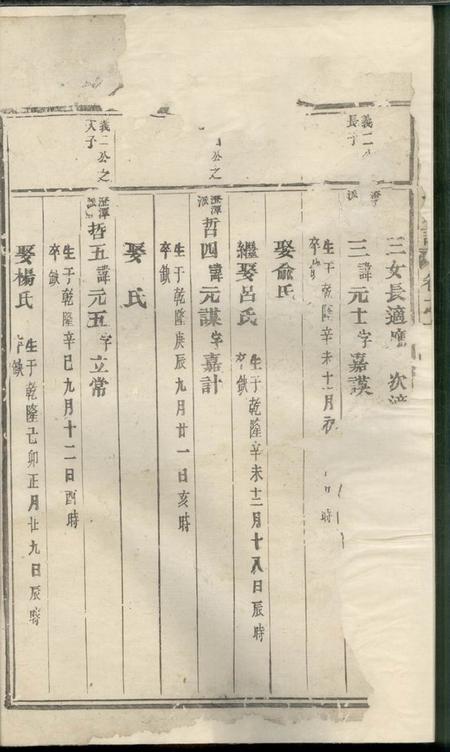 三女長適 次適
義二
長子
澄潭
派
三諱元士字嘉謨
生于乾隆辛未十月初 時
卒
娶俞氏
繼娶呂氏 生于乾隆辛未十二月十八日辰時
卒缺
公之
澄潭
派
哲四諱元謀字嘉計
生于乾隆庚辰九月廿一日亥時
卒缺
娶 氏
義二公之
次子
澄潭
派
哲五諱元五字立常
生于乾隆辛巳九月十二日酉時
卒缺
娶楊氏 生于乾隆己卯正月廿九日辰時
卒缺